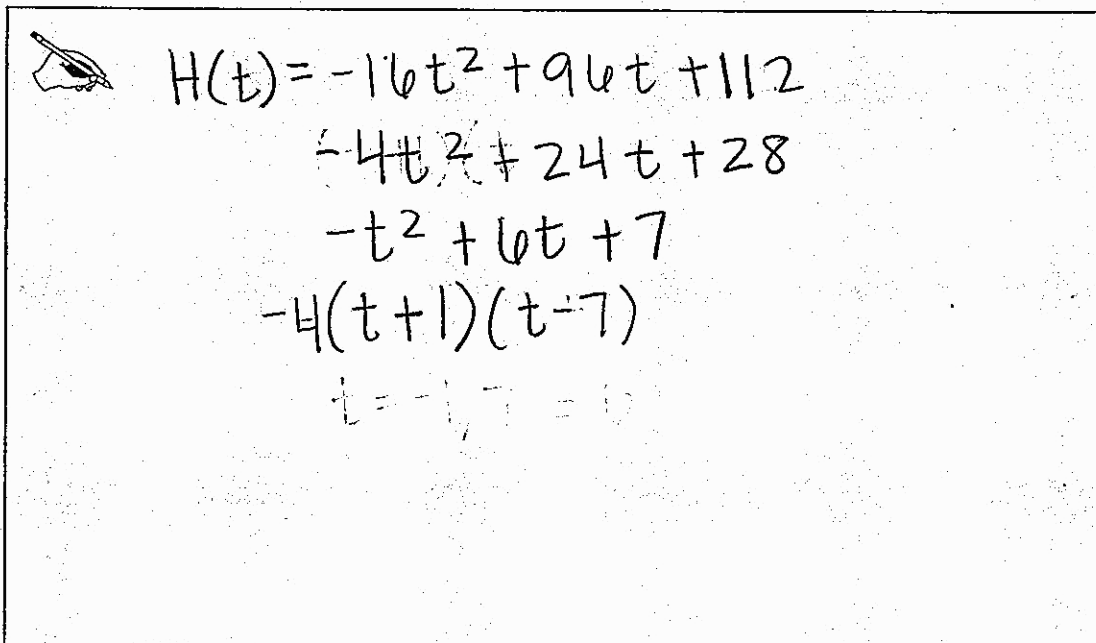 H(t) = -16t² + 96t + 112
-4t² + 24t + 28
-t² + 6t + 7
-4(t+1)(t-7)